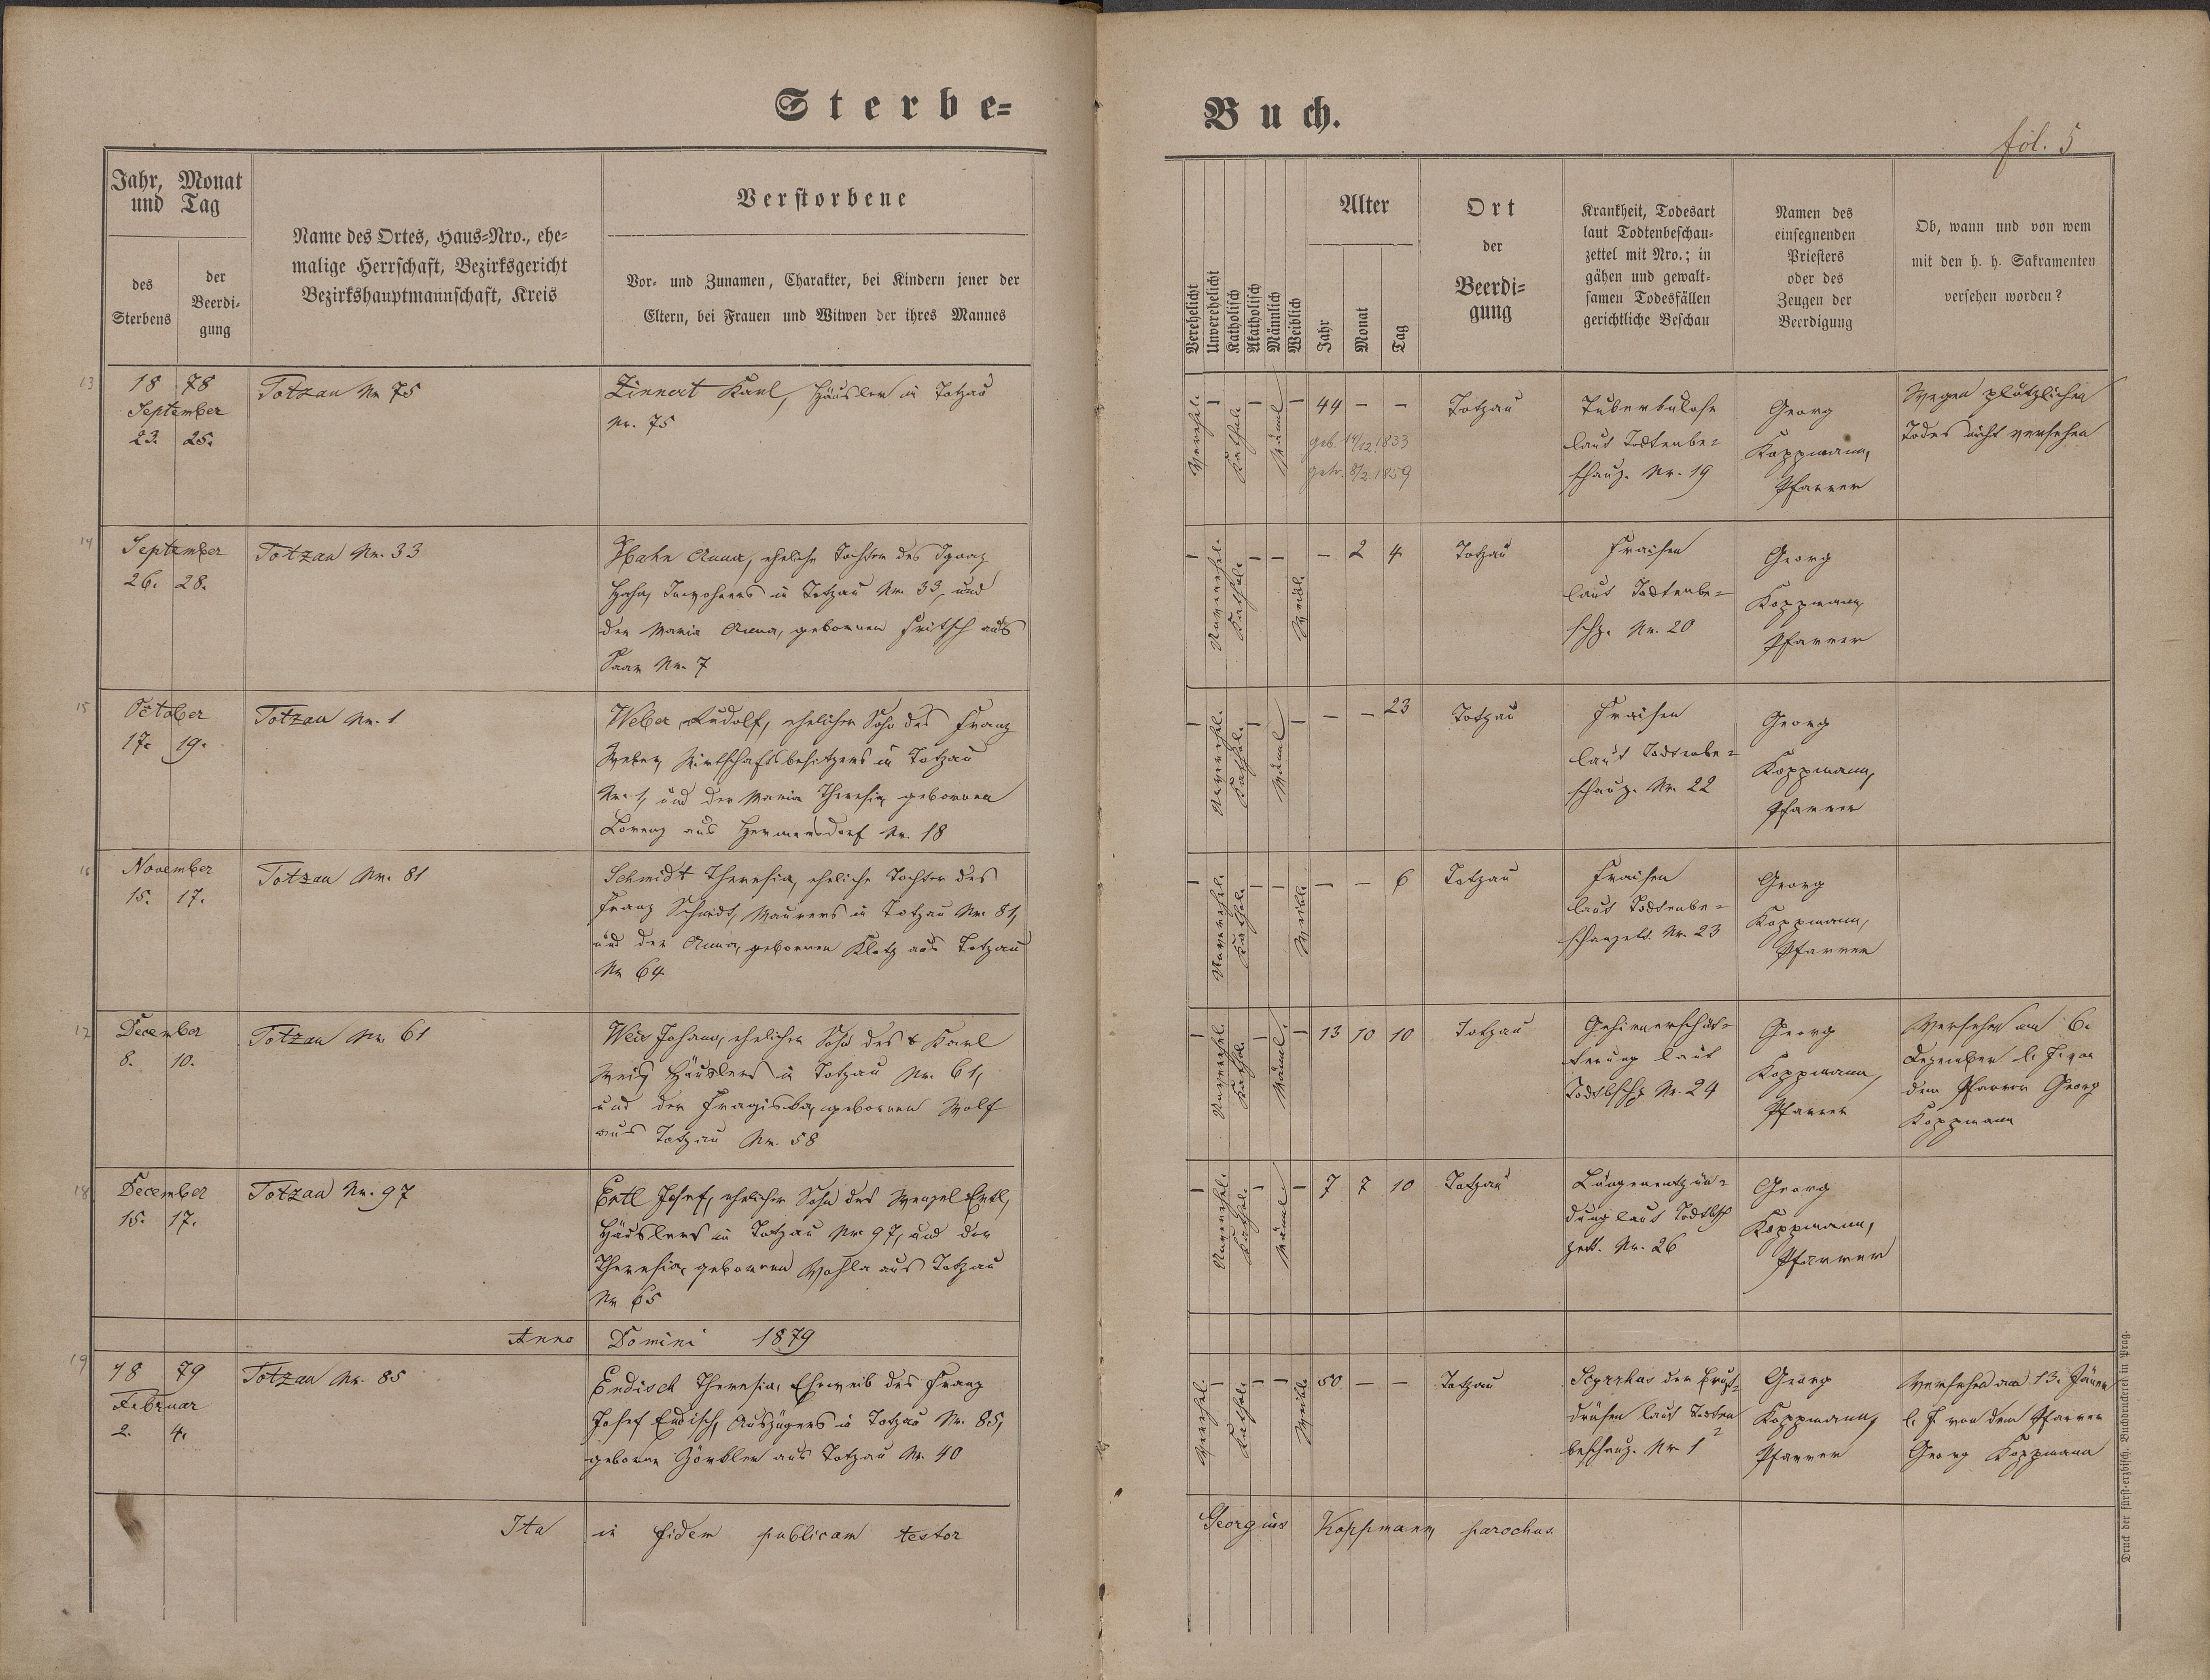 Sterbe=
Buch.
fol. 5
Jahr, Monat
und Tag
des
Sterbens
der
Beerdi-
gung
Name des Ortes, Haus=Nro., ehe=
malige Herrschaft, Bezirksgericht
Bezirkshauptmannschaft, Kreis
Verstorbene
Vor- und Zunamen, Charakter, bei Kindern jener der
Eltern, bei Frauen und Witwen der ihres Mannes
Verehelicht
Unverehelicht
Katholisch
Akatholisch
Männlich
Weiblich
Alter
Jahr
Monat
Tag
Ort
der
Beerdi=
gung
Krankheit, Todesart
laut Todtenbeschau=
zettel mit Nro.; in
gähen und gewalt=
samen Todesfällen
gerichtliche Beschau
Namen des
einsegnenden
Priesters
oder des
Zeugen der
Beerdigung
Ob, wann und von wem
mit den h. h. Sakramenten
versehen worden?
13
18 78
September
23. 25.
Totzau Nr 75
Zinnert Karl, Häusler in Totzau
Nr. 75
Verehel.
–
Kathol.
–
Männl
–
44 – –
geb. 14/12. 1833
getr. 8/2. 1859
Totzau
Tuberkulose
laut Todtenbe=
schauz. Nr. 19
Georg
Koppmann,
Pfarrer
Wegen plötzlichen
Todes nicht versehen
14
September
26. 28.
Totzau Nr. 33
Hahn Anna, eheliche Tochter des Ignaz
Hahn, Inwohners in Totzau Nr. 33, und
der Maria Anna, gebornen Fritsch aus
Saar Nr. 7
–
Unverehel.
Kathol.
–
–
Weibl.
– 2 4
Totzau
Fraisen
laut Todtenbe=
schz. Nr. 20
Georg
Koppmann,
Pfarrer
15
October
17. 19.
Totzau Nr. 1
Weber Rudolf, ehelicher Sohn des Franz
Weber, Wirtschaftsbesitzers in Totzau
Nr. 1, und der Maria Theresia, gebornen
Lorenz aus Hermersdorf Nr. 18
–
Unverehel.
Kathol.
–
Männl
–
– – 23
Totzau
Fraisen
laut Todtenbe=
schauz. Nr. 22
Georg
Koppmann,
Pfarrer
16
November
15. 17.
Totzau Nr. 81
Schmidt Theresia, eheliche Tochter des
Franz Schmidt, Maurers in Totzau Nr. 81,
und der Anna, gebornen Klotz aus Totzau
Nr 64
–
Unverehel.
Kathol.
–
–
Weibl.
– – 6
Totzau
Fraisen
laut Todtenbe=
schauzett. Nr. 23
Georg
Koppmann,
Pfarrer
17
December
8. 10.
Totzau Nr. 61
Weis Johann, ehelicher Sohn des Karl
Weis Häuslers in Totzau Nr. 61,
und der Franziska, gebornen Wolf
aus Totzau Nr. 58
–
Unverehel.
Kathol.
–
Männl.
–
13 10 10
Totzau
Gehirnerschüt=
terung laut
Todtbschz Nr. 24
Georg
Koppmann,
Pfarrer
Versehen am 6.
Dezember l. J. von
dem Pfarrer Georg
Koppmann
18
December
15. 17.
Totzau Nr. 97
Ertl Josef, ehelicher Sohn des Wenzel Ertl,
Häuslers in Totzau Nr 97, und der
Theresia, gebornen aus Totzau
Nr 65
–
Unverehel.
Kathol.
–
Männl.
–
7 7 10
Totzau
Lungenentzün=
dung laut Todtbsch
zett. Nr. 26
Georg
Koppmann,
Pfarrer
Anno Domini 1879
19
18 79
Februar
2. 4.
Totzau Nr. 85
Endisch Theresia, Eheweib des Franz
Josef Endisch, Auszüglers in Totzau Nr. 85,
geborne aus Totzau Nr. 40
Verehel.
–
Kathol.
–
–
Weibl.
50 – –
Totzau
der Brust=
drüsen laut Todten
beschauz. Nr 1
Georg
Koppmann,
Pfarrer
Versehen am 13. Jänner
l. J. von dem Pfarrer
Georg Koppmann
Ita in fidem publicam testor Georgius Koppmann, parochus.
Druck der fürst-erzbisch. Buchdruckerei in Prag.